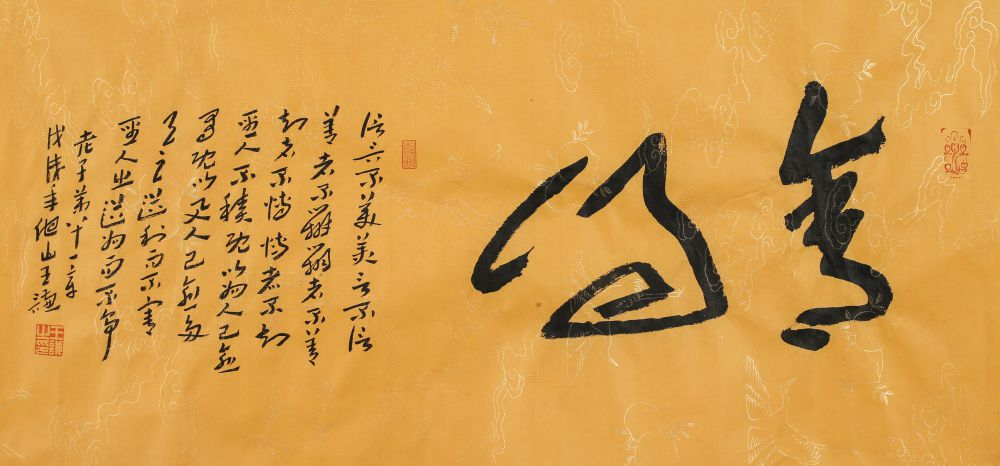 舍得
信言不美美言不信
善者不辯辯者不善
知者不博博者不知
聖人不積既以為人己愈
有既以與人己愈多
天之道利而不害
聖人之道為而不爭
老子第八十一章
戊戌年山王謙
王謙之印